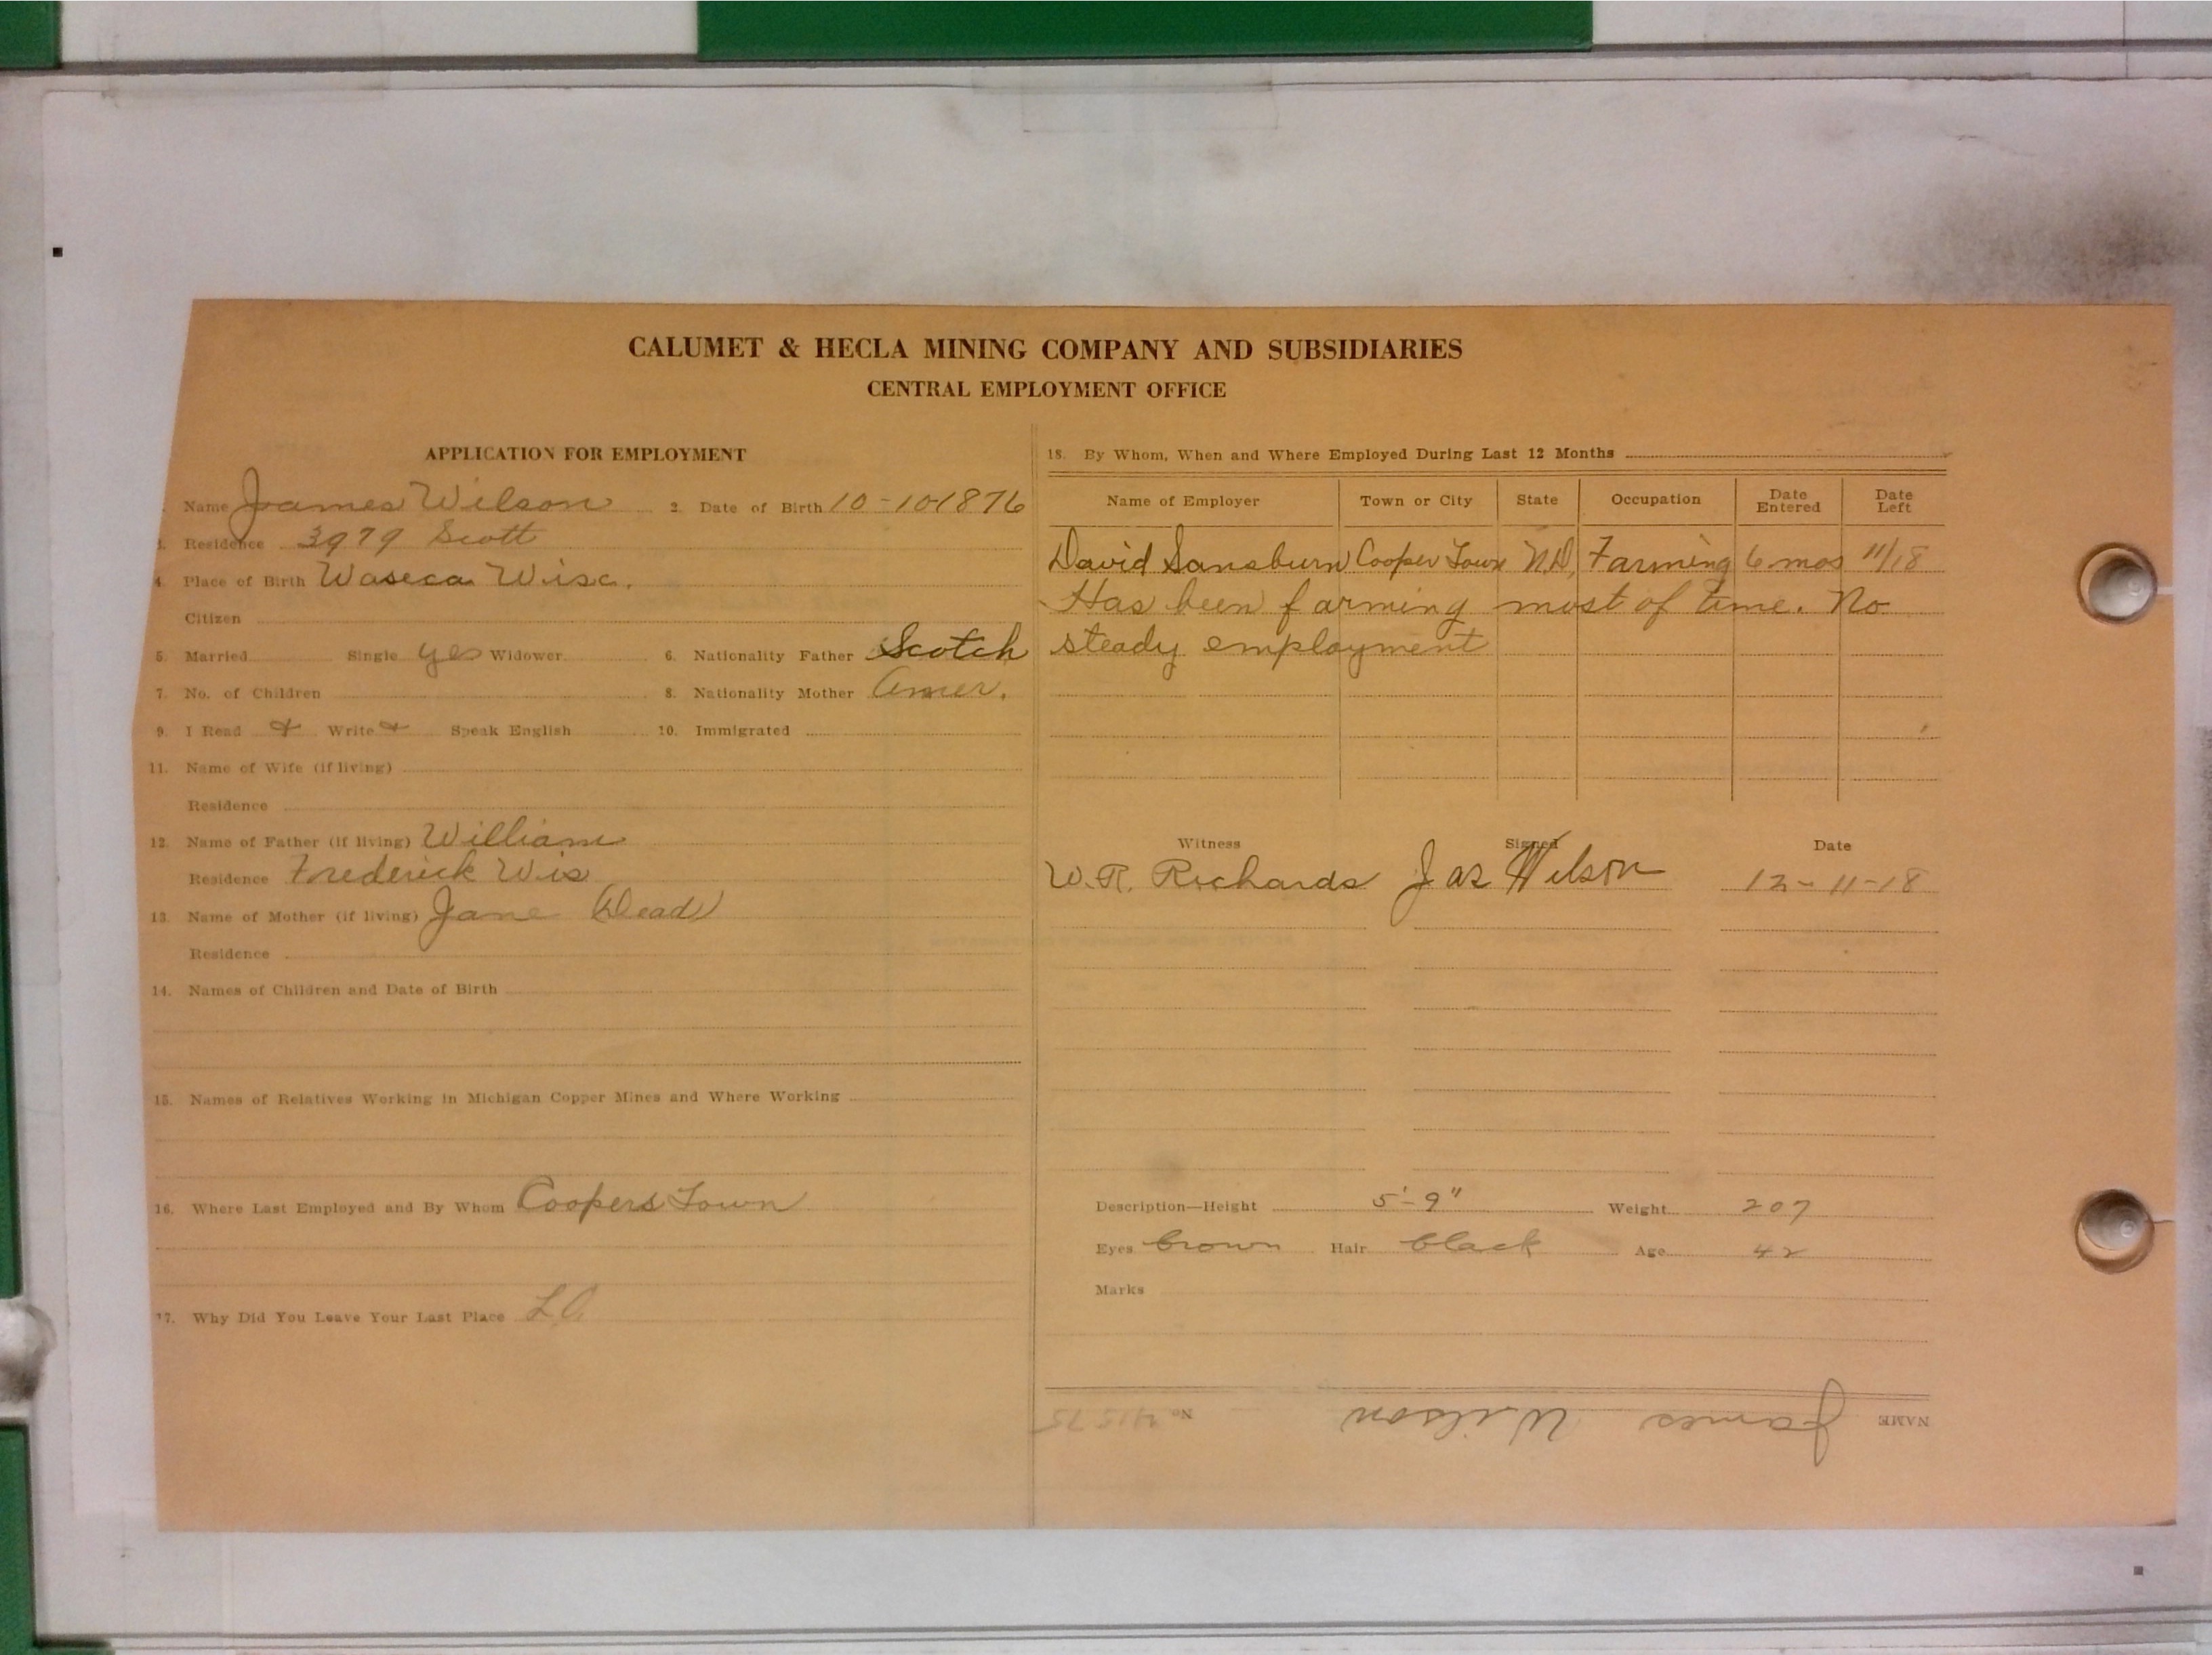 CALUMET & HECLA MINING COMPANY AND SUBSIDIARIES
CENTRAL EMPLOYMENT OFFICE
APPLICATION FOR EMPLOYMENT
Name James Wilson 2. Date of Birth 10-10-1876
3. Residence 3979 Scott
4. Place of Birth Waseca Wisc.
Citizen
5. Married Single yes Widower 6. Nationality Father Scotch
7. No. of Children 8. Nationality Mother Amer.
9. I Read & Write & Speak English 10. Immigrated
11. Name of Wife (if living)
Residence
12. Name of Father (if living) William
Residence Frederick Wis
13. Name of Mother (if living) Jane (Dead)
Residence
14. Names of Children and Date of Birth
15. Names of Relatives Working in Michigan Copper Mines and Where Working
16. Where Last Employed and By Whom Coopers Town
17. Why Did You Leave Your Last Place L.O.
18. By Whom, When and Where Employed During Last 12 Months
Name of Employer Town or City State Occupation Date Entered Date Left
David Sansburn Cooper Town N.D. Farming 6 mos 11/18
Has been farming most of time. No
steady employment
Witness Signed Date
W.R. Richards Jas Wilson 12-11-18
Description—Height 5'-9" Weight 207
Eyes brown Hair black Age 42
Marks
NAME James Wilson No